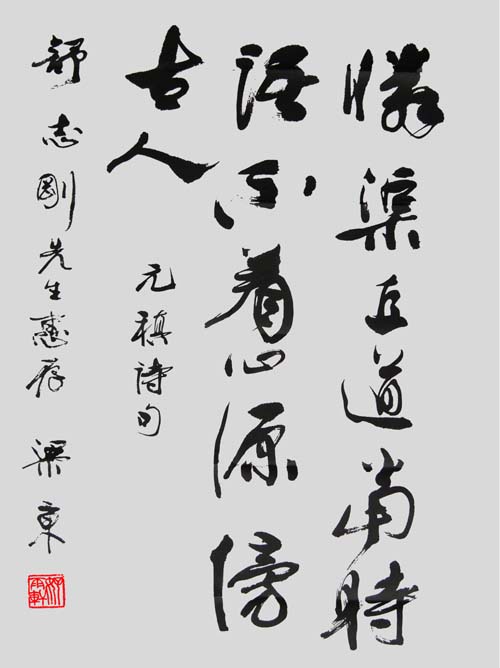 憐渠直道當時
語不着心源傍
古人
元稹詩句
舒志剛先生惠存 梁東
好雨軒